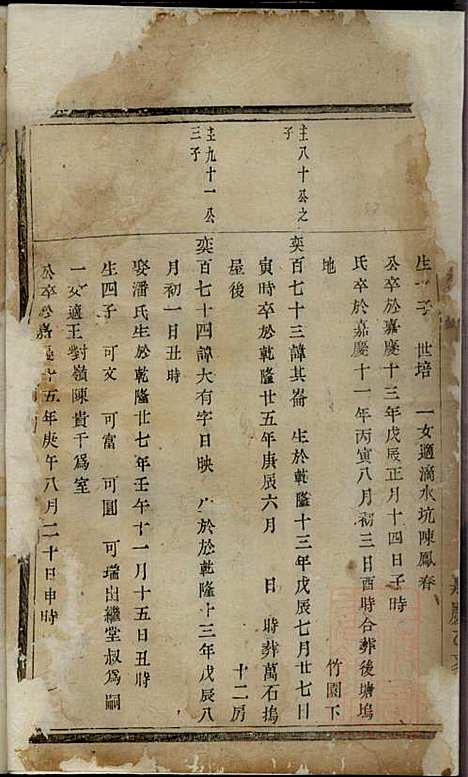 生一子 世培 一女適滴水坑陳鳳春
公卒於嘉慶十三年戊辰正月十四日子時
氏卒於嘉慶十一年丙寅八月初三日酉時合葬後塘塢
竹園下
地
圭八十公之
子
奕百七十三諱其崙 生於乾隆十三年戊辰七月廿七日
寅時卒於乾隆廿五年庚辰六月 日 時葬萬石塢
屋後 十二房
圭九十一公
三子
奕百七十四諱大有字日映 於於乾隆十三年戊辰八
月初一日丑時
娶潘氏生於乾隆廿七年壬午十一月十五日丑時
生四子 可文 可富 可圓 可瑞出繼堂叔為嗣
一女適王對嶺陳貴千為室
公卒於嘉慶十五年庚午八月二十日申時